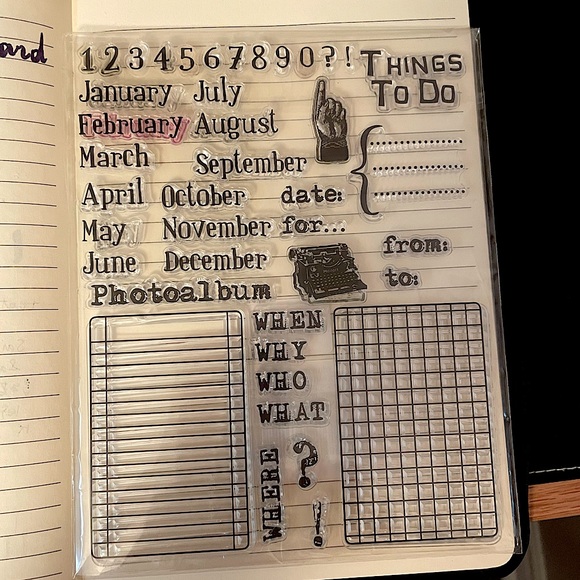 ard
1234567890?!
THINGS
TO DO
January July
February August
March September
April October
May November
June December
date:
for...
from:
to:
Photoalbum
WHEN
WHY
WHO
WHAT
WHERE
?
!